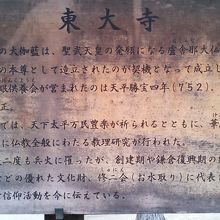 東大寺
の大伽藍は、聖武天皇の発願になる盧舎那大仏
の本尊として造立されたのが契機となって成立し
眼供養会が営まれたのは天平勝宝四年(752)、
正。
では、天下太平万民豊楽が祈られるとともに、華
に仏教全般にわたる教理研究が行われた。
二度も兵火に罹ったが、創建期や鎌倉復興期の
などの優れた文化財、修二会(お水取り)に代表
信仰活動を今に伝えている。